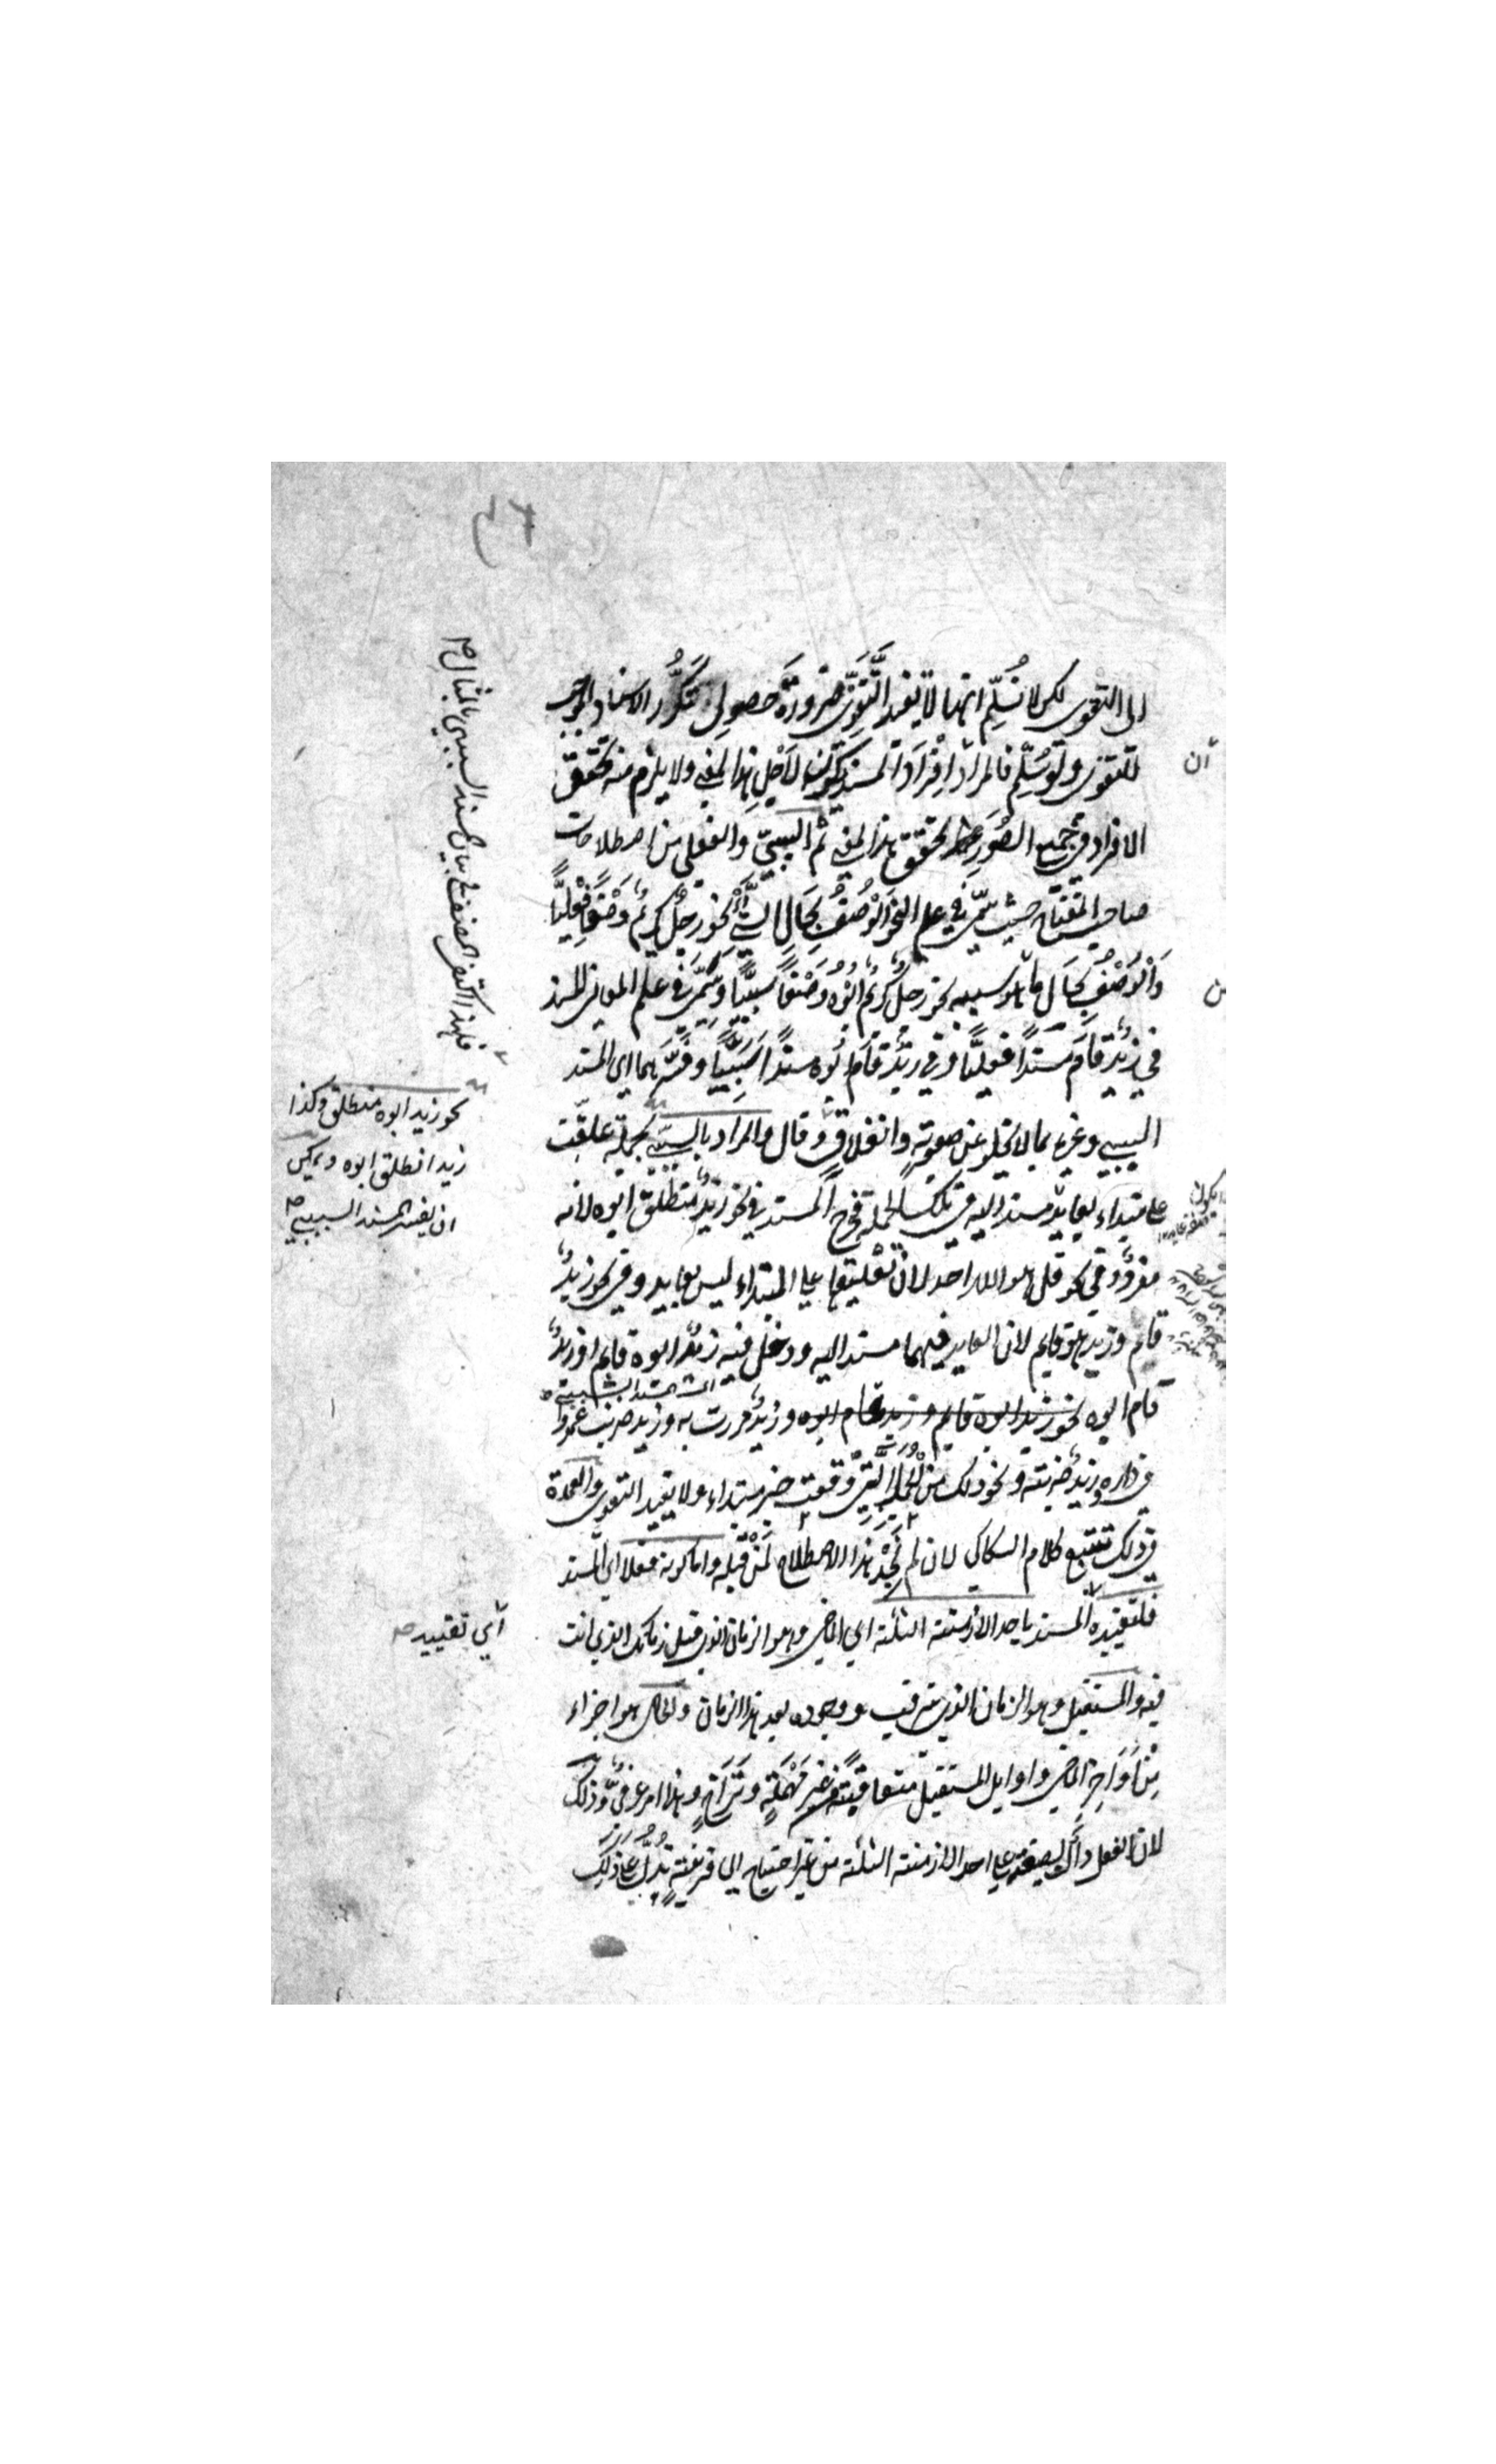 الى التقوى لكن لا نُسَلِّم انها لا تفيد التَّقَوِّي ضرورةَ حصولِ تَكَرُّر الاسناد الموجب
للتقوى ولو سُلِّم فالمراد اِفْرَادَ المسند يكون لاَجْلِ هذا المعنى ولا يلزم منه تحقق
الافراد فى جميع الصُّوَرِ تحقق هذا المعنى ثم السببىّ والفعلى من اصطلاحات
صاحب المفتاح حيث سَمَّى فى علم النحو الْوَصْفَ بِحَالِ الشَّئِ نحو رجلٌ كريمٌ وَصْفًا فِعْلِيًّا
وَالْوَصْفَ بِحَالِ ما هو سببه نحو رجلٌ كريمٌ ابُوهُ وَصْفًا سببيًّا وسَمَّى فى علم المعانى المسند
فى زيدٌ قَامَ مسندًا فعليًّا وفى زيدٌ قَام ابوه مسندًا سَبَبِيًّا وفسّرهما اى المسند
السببى وغيره بما لا يخلو عن صعوبةٍ وانغلاقٍ وقال والمراد بالسببى جملة علّقت
على مبتداء بعايد ليس مسندا اليه فى تلك الجملة فخرج المسند فى نحو زيدٌ منطلق ابوه لانه
مفرد وفى نحو قل هو الله احد لان تعليقها على المبتداء ليس بعايد وفى نحو زيدٌ
قام وزيد هو قايم لان العايد فيهما مسند اليه ودخل فيه زيدٌ ابوه قايم او زيدٌ
قام ابوه نحو زيد ابوه قايم وزيد قام ابوه وزيدٌ مررت به وزيد ضربت عمروا
فى داره وزيدٌ ضربته ونحو ذلك مِنَ الْجُمَلِ الَّتِى وقعت خبر مبتداء ولا يفيد التقوى والعمدة
فى ذلك تتبع كلام السكاكى لان لم نَجِدْ هذا الاصطلاح لِمَنْ قَبْلَه واما كونه فعلا اى المسند
فلتقييده المسند باحد الازمنة الثلثة اى الماضى وهو الزمان الذى قبل زمانك الذى انت
فيه والمستقبل وهو الزمان الذى يترقب ووجوده بعد هذا الزمان والحال هو اجزاء
مِنْ اَوَاخِرِ الماضى واوايل المستقبل متعاقبةً من غير مُهْلَةٍ وتَرَاخٍ وهذا امر عرفىٌّ وذلك
لان الفعل دالٌّ بصيغته على احد الازمنة الثلثة من غير احتياج الى قرينةٍ تَدُلُّ على ذلك
ان
فلهذا اكتفى المصنف فى بيان المسند السببى بالمثال
نحو زيد ابوه منطلق وكذا
زيد انطلق ابوه ويمكن
ان يفسر المسند السببى
اى تقييد